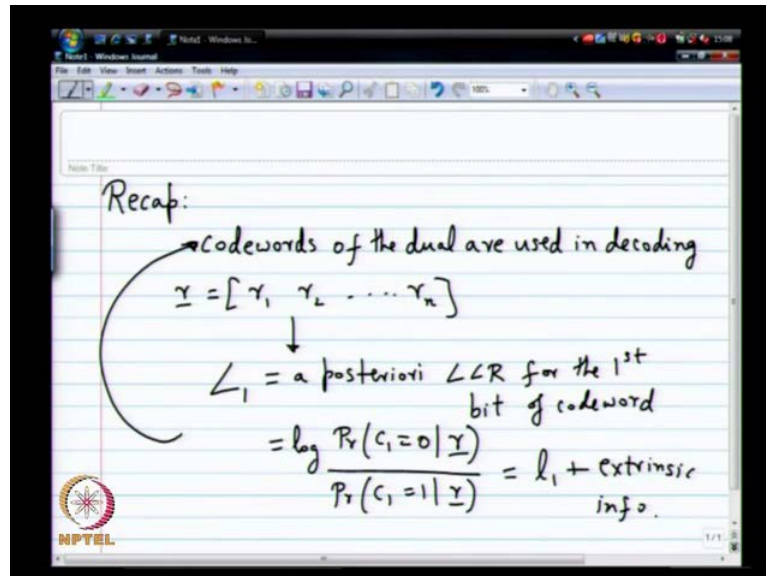 Note1 - Windows Jo...
15:08
Note1 - Windows Journal
File Edit View Insert Actions Tools Help
100%
Note Title
Recap:
codewords of the dual are used in decoding
r = [ r₁ r₂ . .... rₙ ]
↓
L₁ = a posteriori LLR for the 1st
bit of codeword
= log Pr(c₁=0|r) / Pr(c₁=1|r) = l₁ + extrinsic
info.
1/1
NPTEL